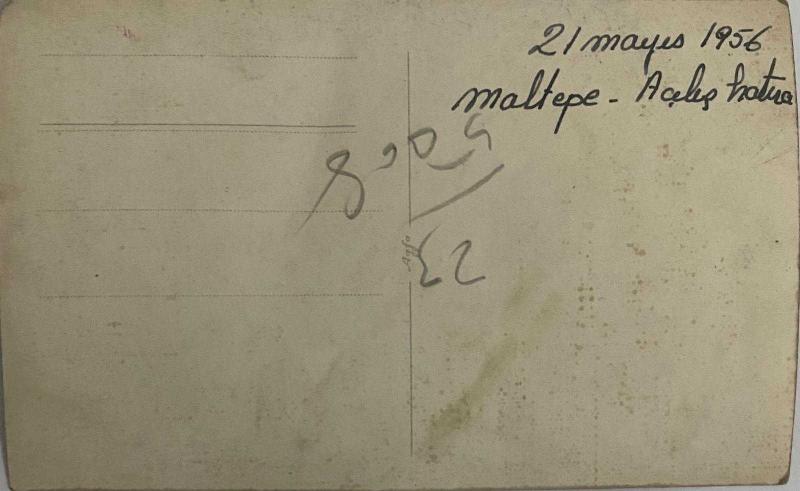 21 mayıs 1956
Maltepe - Açılış hatıra
Agfa